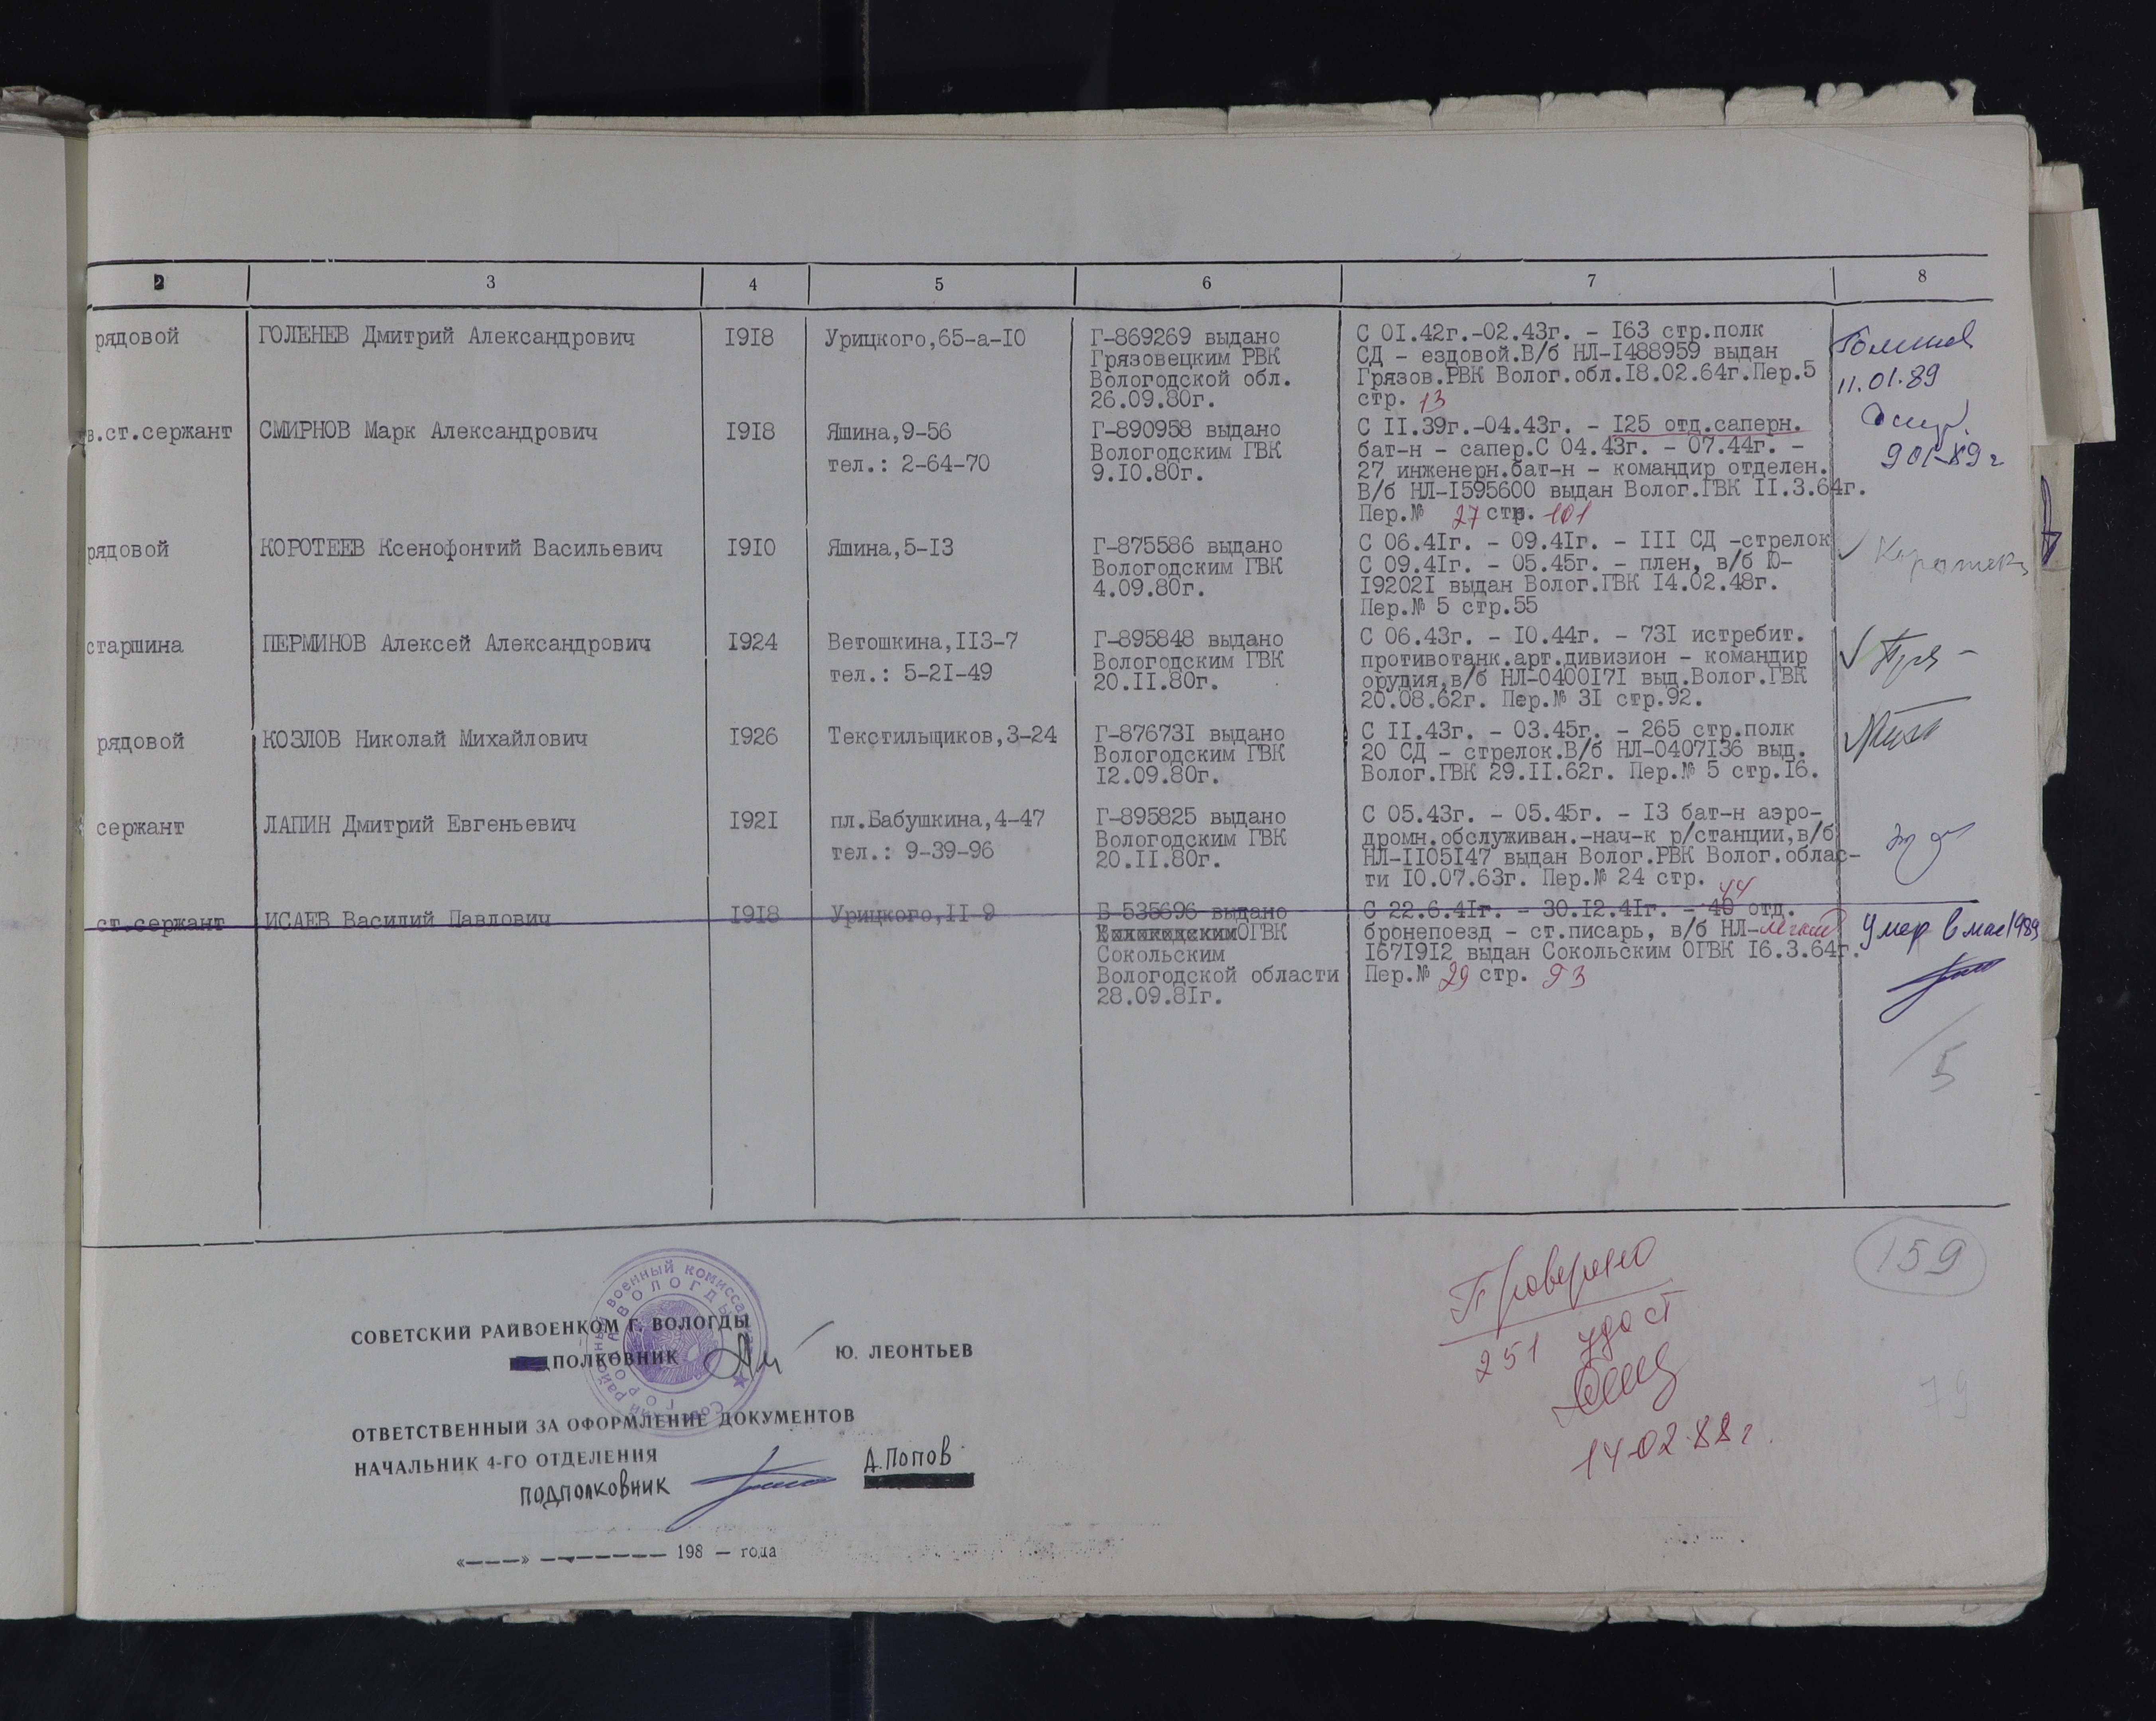 2 3 4 5 6 7 8
рядовой ГОЛЕНЕВ Дмитрий Александрович 1918 Урицкого,65-а-10 Г-869269 выдано С 01.42г.-02.43г. - 163 стр.полк
Грязовецким РВК СД - ездовой.В/б НЛ-1488959 выдан
Вологодской обл. Грязов.РВК Волог.обл.18.02.64г.Пер.5 11.01.89
26.09.80г. стр. 13
в.ст.сержант СМИРНОВ Марк Александрович 1918 Яшина,9-56 Г-890958 выдано С 11.39г.-04.43г. - 125 отд.саперн.
тел.: 2-64-70 Вологодским ГВК бат-н - сапер.С 04.43г. - 07.44г. - 901-89г
9.10.80г. 27 инженерн.бат-н - командир отделен.
В/б НЛ-1595600 выдан Волог.ГВК 11.3.64г.
Пер.№ 27 стр. 101
рядовой КОРОТЕЕВ Ксенофонтий Васильевич 1910 Яшина,5-13 Г-875586 выдано С 06.41г. - 09.41г. - 111 СД -стрелок
Вологодским ГВК С 09.41г. - 05.45г. - плен, в/б Ю-
4.09.80г. 192021 выдан Волог.ГВК 14.02.48г.
Пер.№ 5 стр.55
старшина ПЕРМИНОВ Алексей Александрович 1924 Ветошкина,113-7 Г-895848 выдано С 06.43г. - 10.44г. - 731 истребит.
тел.: 5-21-49 Вологодским ГВК противотанк.арт.дивизион - командир
20.11.80г. орудия,в/б НЛ-0400171 выд.Волог.ГВК
20.08.62г. Пер.№ 31 стр.92.
рядовой КОЗЛОВ Николай Михайлович 1926 Текстильщиков,3-24 Г-876731 выдано С 11.43г. - 03.45г. - 265 стр.полк
Вологодским ГВК 20 СД - стрелок.В/б НЛ-0407136 выд.
12.09.80г. Волог.ГВК 29.11.62г. Пер.№ 5 стр.16.
сержант ЛАПИН Дмитрий Евгеньевич 1921 пл.Бабушкина,4-47 Г-895825 выдано С 05.43г. - 05.45г. - 13 бат-н аэро-
тел.: 9-39-96 Вологодским ГВК дромн.обслуживан.-нач-к р/станции,в/б
20.11.80г. НЛ-1105147 выдан Волог.РВК Волог.облас-
ти 10.07.63г. Пер.№ 24 стр. 44
ст.сержант ИСАЕВ Василий Павлович 1918 Урицкого,11-9 Б-535696 выдано С 22.6.41г. - 30.12.41г. - 40 отд.
ОГВК бронепоезд - ст.писарь, в/б НЛ- Умер в мае 1989
Сокольским 1671912 выдан Сокольским ОГВК 16.3.64г.
Вологодской области Пер.№ 29 стр. 93
28.09.81г.
5
159
Проверено
251 удост
14.02.88г.
79
СОВЕТСКИЙ РАЙВОЕНКОМ Г. ВОЛОГДЫ
ПОЛКОВНИК Ю. ЛЕОНТЬЕВ
ОТВЕТСТВЕННЫЙ ЗА ОФОРМЛЕНИЕ ДОКУМЕНТОВ
НАЧАЛЬНИК 4-ГО ОТДЕЛЕНИЯ
ПОДПОЛКОВНИК А.ПОПОВ
«----» -------- 198 — года